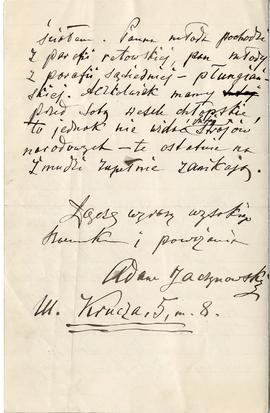 świołem. Panna młoda pochodzi
z parafii retowskiej, pan młody
z parafii sąsiedniej – płungian-
skiej. Aczkolwiek mamy
przed sobą wesele chłopskie,
to jednak nie widać strojów
narodowych – te ostatnie na
Żmudzi zupełnie zanikają.
Łączę wyrazy wysokiego
szacunku i poważania
Adam Jaczynowski
Ul. Krucza, 5, m. 8.